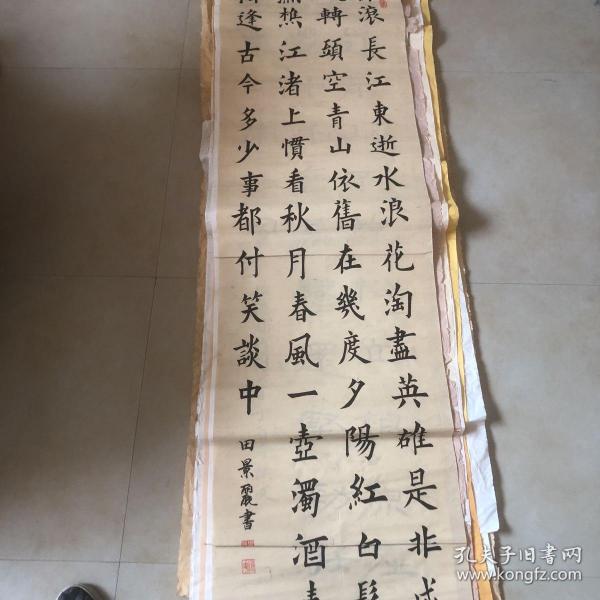 滾長江東逝水浪花淘盡英雄是非成
轉頭空青山依舊在幾度夕陽紅白髮
樵江渚上慣看秋月春風一壺濁酒喜
逢古今多少事都付笑談中
田景麗書
孔夫子旧书网
www.kongfz.com